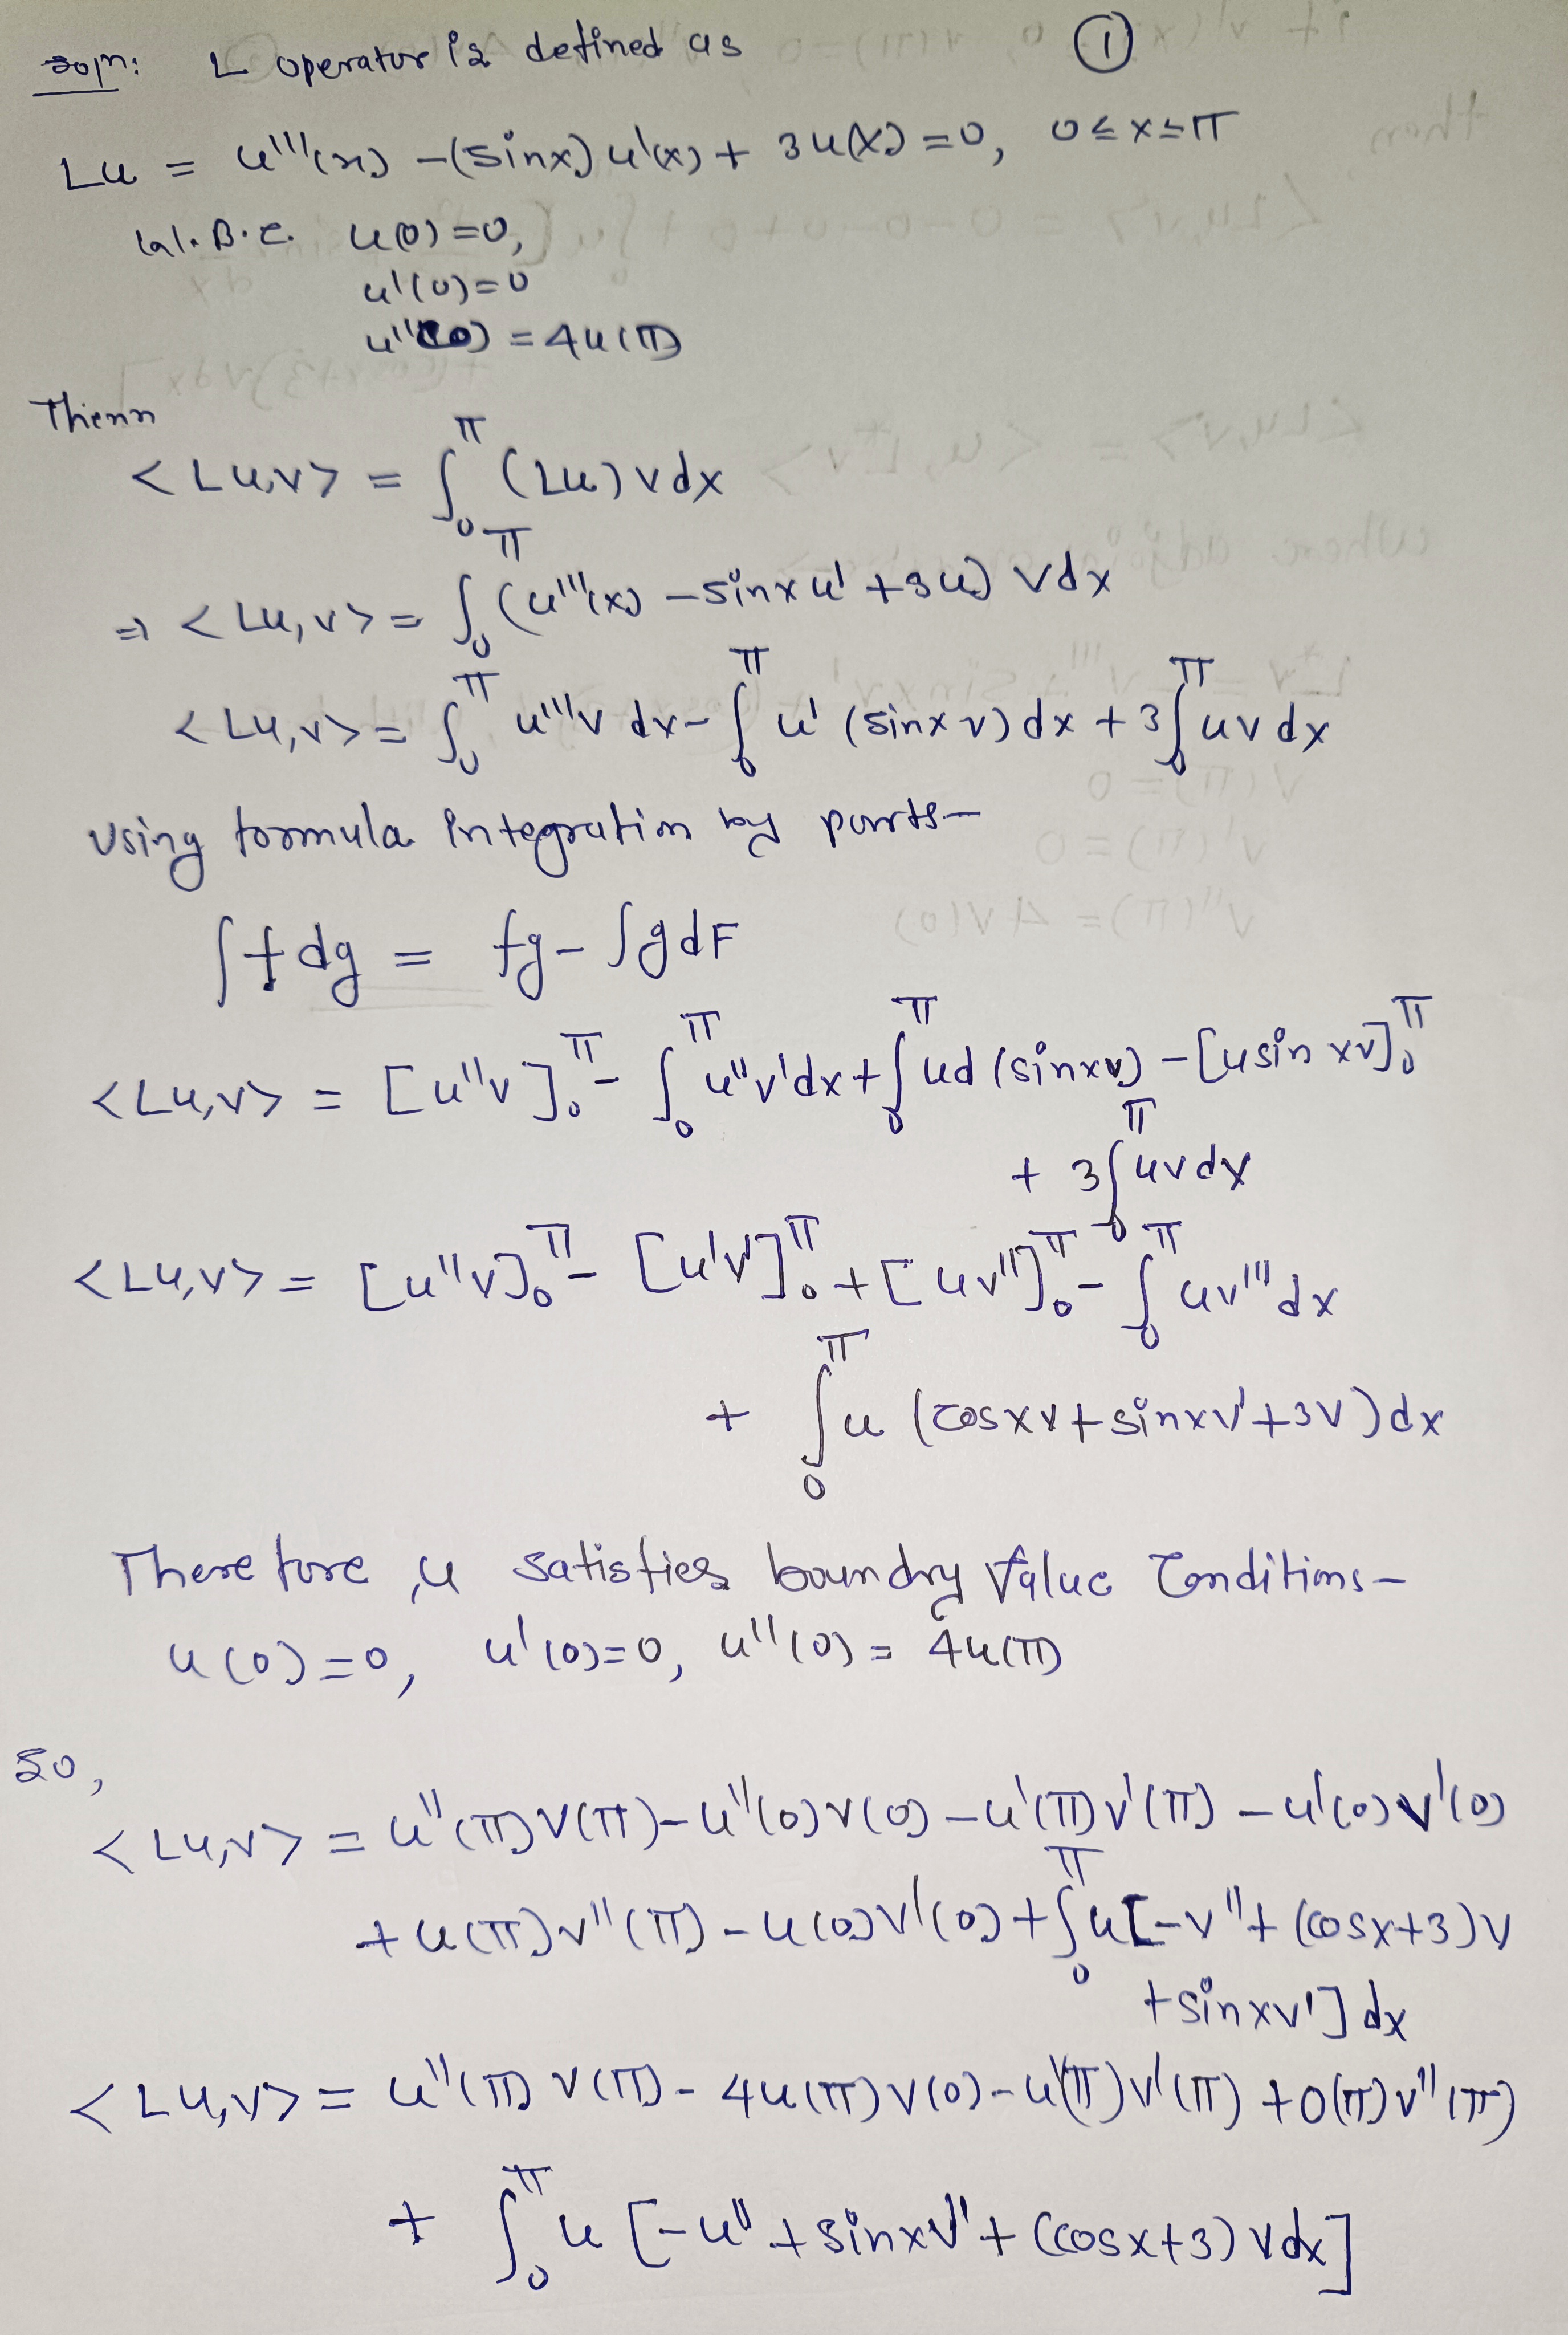 Soln: L operator is defined as ①
Lu = u'''(x) -(sinx) u'(x) + 3u(x) = 0, 0≤x≤π
(a). B.C. u(0)=0,
u'(0)=0
u''(0) = 4u(π)
Thenn
<Lu,v> = ∫₀^π (Lu) v dx
⇒ <Lu,v> = ∫₀^π (u'''(x) - sinx u' + 3u) v dx
<Lu,v> = ∫₀^π u'''v dx - ∫₀^π u' (sinx v) dx + 3∫₀^π uv dx
Using formula Integration by parts-
∫f dg = fg - ∫g dF
<Lu,v> = [u''v]₀^π - ∫₀^π u''v'dx + ∫₀^π ud (sinxv) - [usin xv]₀^π
+ 3∫₀^π uvdx
<Lu,v> = [u''v]₀^π - [u'v']₀^π + [uv'']₀^π - ∫₀^π uv'''dx
+ ∫₀^π u (cosxv + sinxv' + 3v) dx
Therefore, u satisfies boundry value Conditions-
u(0)=0, u'(0)=0, u''(0) = 4u(π)
So,
<Lu,v> = u''(π)v(π) - u''(0)v(0) - u'(π)v'(π) - u'(0)v'(0)
+ u(π)v''(π) - u(0)v'(0) + ∫₀^π u[-v'' + (cosx+3)v
+ sinxv'] dx
<Lu,v> = u''(π) v(π) - 4u(π)v(0) - u'(π)v'(π) + 0(π)v''(π)
+ ∫₀^π u [-u'' + sinxv' + (cosx+3) vdx]